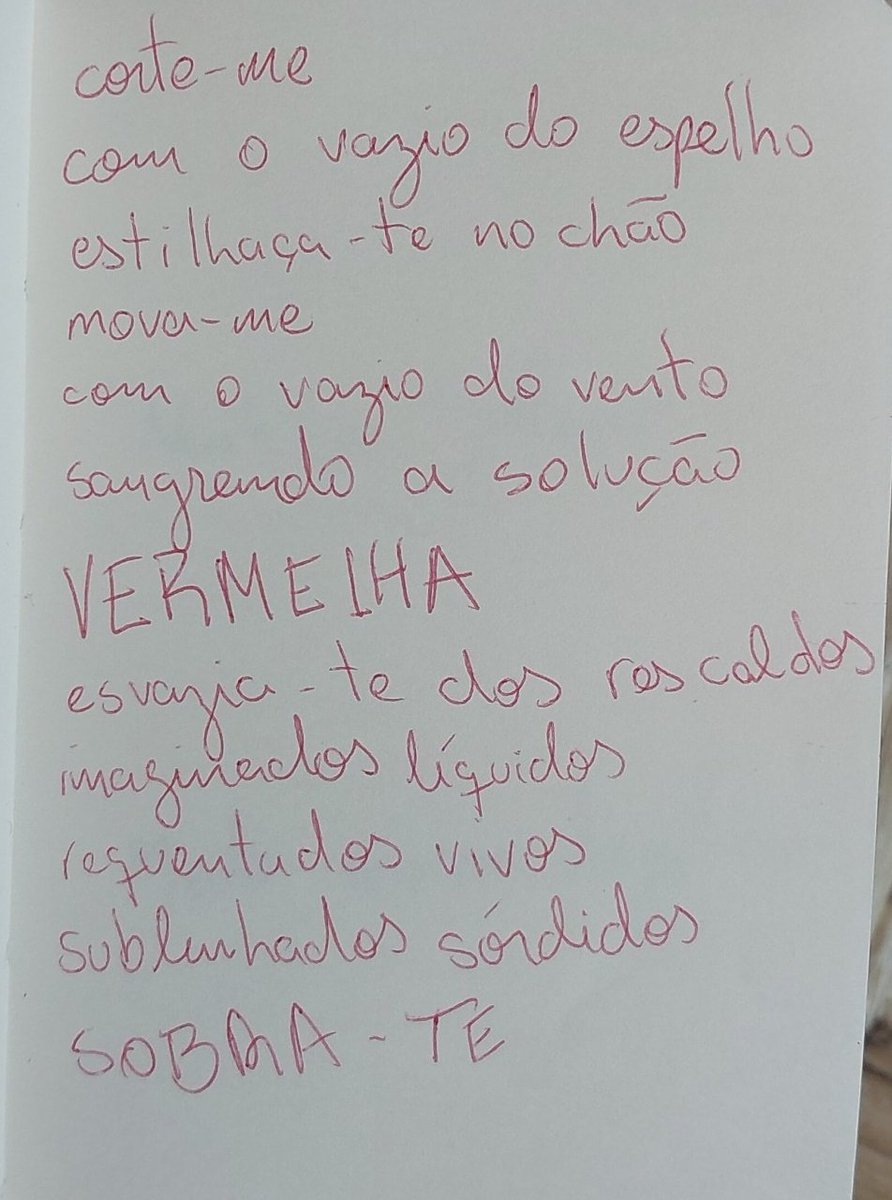 corte-me
com o vazio do espelho
estilhaça-te no chão
mova-me
com o vazio do vento
sangrando a solução
VERMELHA
esvazia-te dos rescaldos
imaginados líquidos
requentados vivos
sublinhados sórdidos
SOBRA-TE